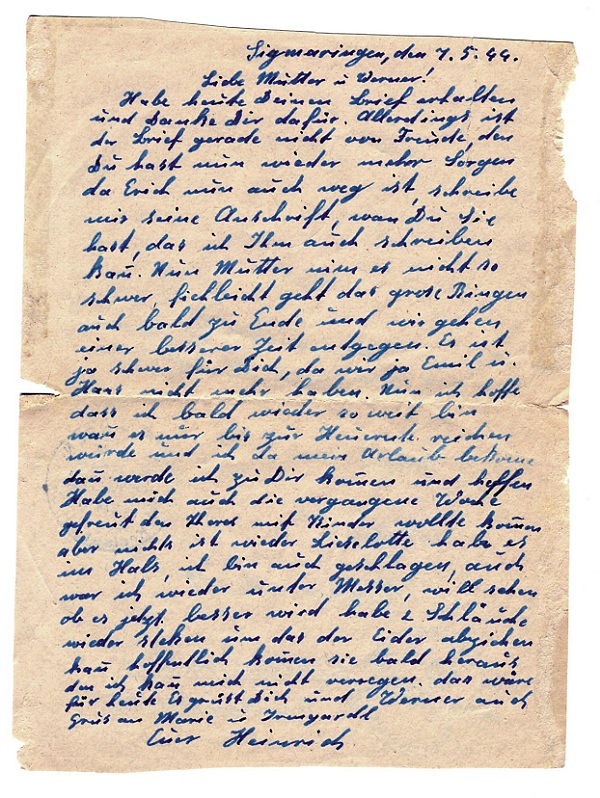 Sigmaringen, den 7.5.44.
Liebe Mutter u Werner!
Habe heute Deinen Brief erhalten
und Danke Dir dafür. Allerdings ist
der Brief gerade nicht von Freude, den
Du hast nun wieder mehr Sorgen
da Erich nun auch weg ist, schreibe
mir seine Anschrift, wan Du Sie
hast, das ich Ihm auch schreiben
kan. Nun Mutter nim es nicht so
schwer, fieleicht geht das grose Ringen
auch bald zu Ende und wir gehen
einer besserer Zeit entgegen. Es ist
ja schwer für Dich, da wir ja Emil u.
Hans nicht mehr haben. Nun ich hoffe
dass ich bald wieder so weit bin
wan es nur bis zur Heuernte reichen
würde und ich da mein Urlaub bekome
dan werde ich zu Dir komen und helfen
Habe mich auch die vergangene Woche
gefreut den Theres mit Kinder wollte komen
aber nichts ist wieder Lieselotte habe es
im Hals, ich bin auch geschlagen, auch
war ich wieder unter Messer, will sehen
ob es jetzt besser wird habe 2 Schläuche
wieder steken um das der Eider abziehen
kan hoffentlich komen sie bald heraus
den ich kan mich nicht verregen. das wäre
für heute Es grüst Dich und Werner auch
Grus an Marie u Irmgardl
Euer Heinrich